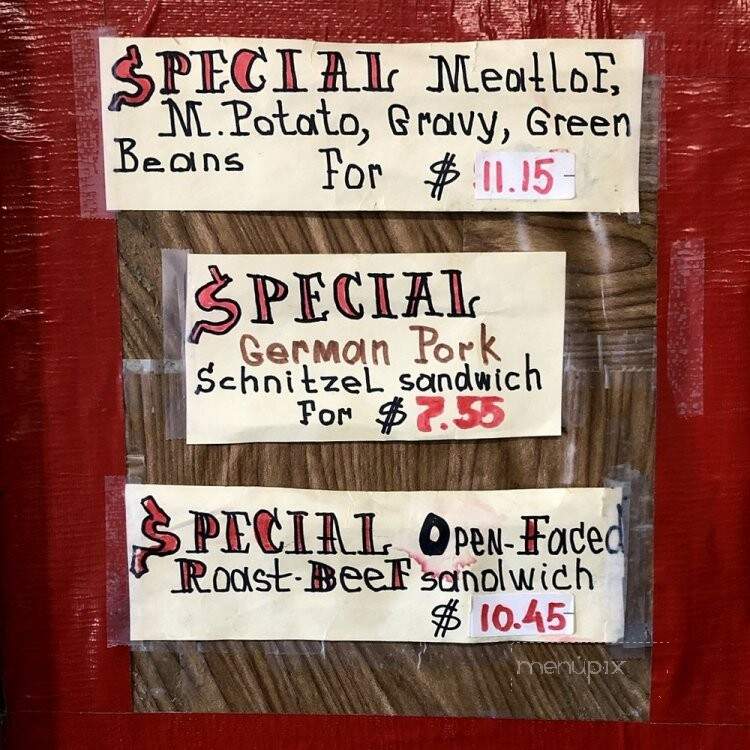 $PECIAL MeatloF,
M. Potato, Gravy, Green
Beans For $ 11.15
$PECIAL
German Pork
SchnitzeL sandwich
For $ 7.55
$PECIAL Open-Faced
Roast-BeeF sandwich
$ 10.45
menupix